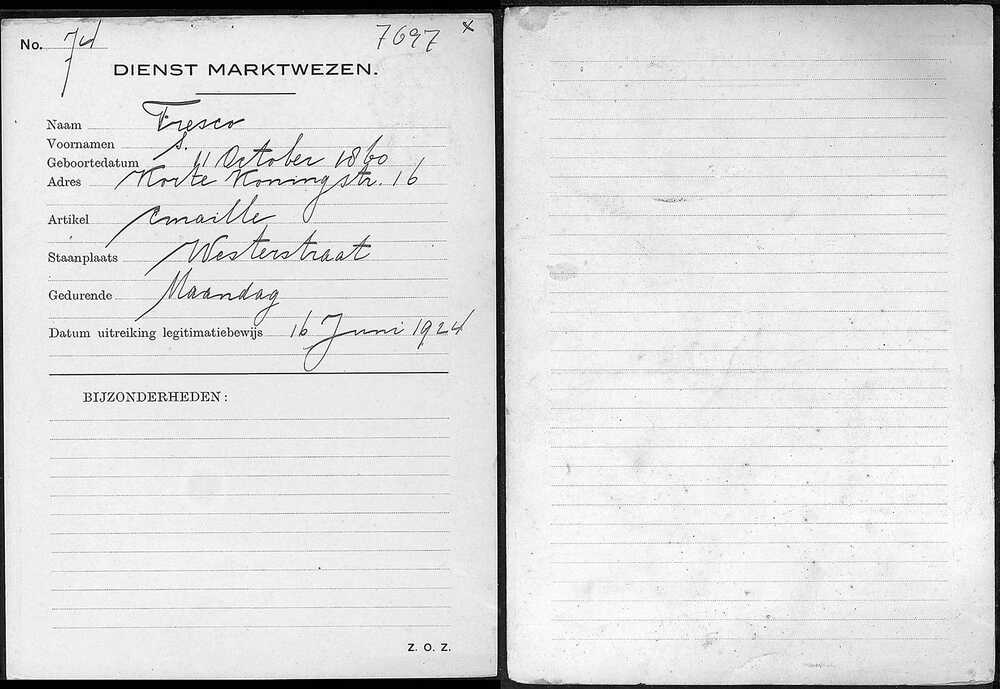 No. 74 7697 x
DIENST MARKTWEZEN.
Naam Fresco
Voornamen S.
Geboortedatum 11 October 1860
Adres Korte Koningstr. 16
Artikel emaille
Staanplaats Westerstraat
Gedurende Maandag
Datum uitreiking legitimatiebewijs 16 Juni 1924
BIJZONDERHEDEN:
Z. O. Z.